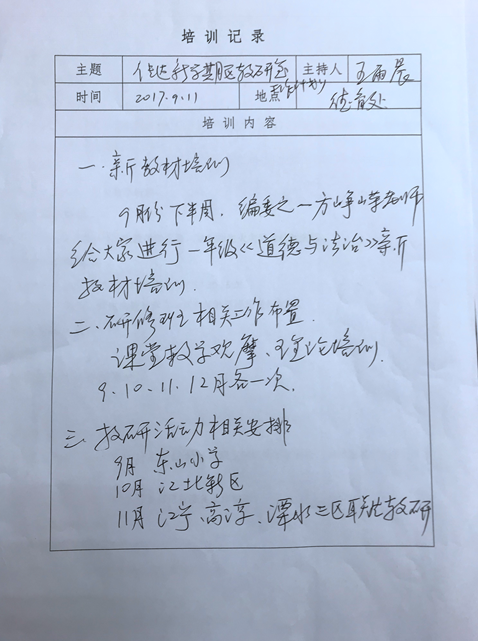 培训记录
主题 传达新学期区教研室工作计划 主持人 王雨晨
时间 2017.9.11 地点 德育处
培训内容
一.新教材培训
9月份下半周.编委之一方峥嵘老师
给大家进行一年级《道德与法治》新
教材培训.
二.研修班相关工作布置.
课堂教学观摩、理论培训.
9、10、11、12月各一次.
三.教研活动相关安排
9月 东山小学
10月 江北新区
11月 江宁、高淳、溧水三区联片教研